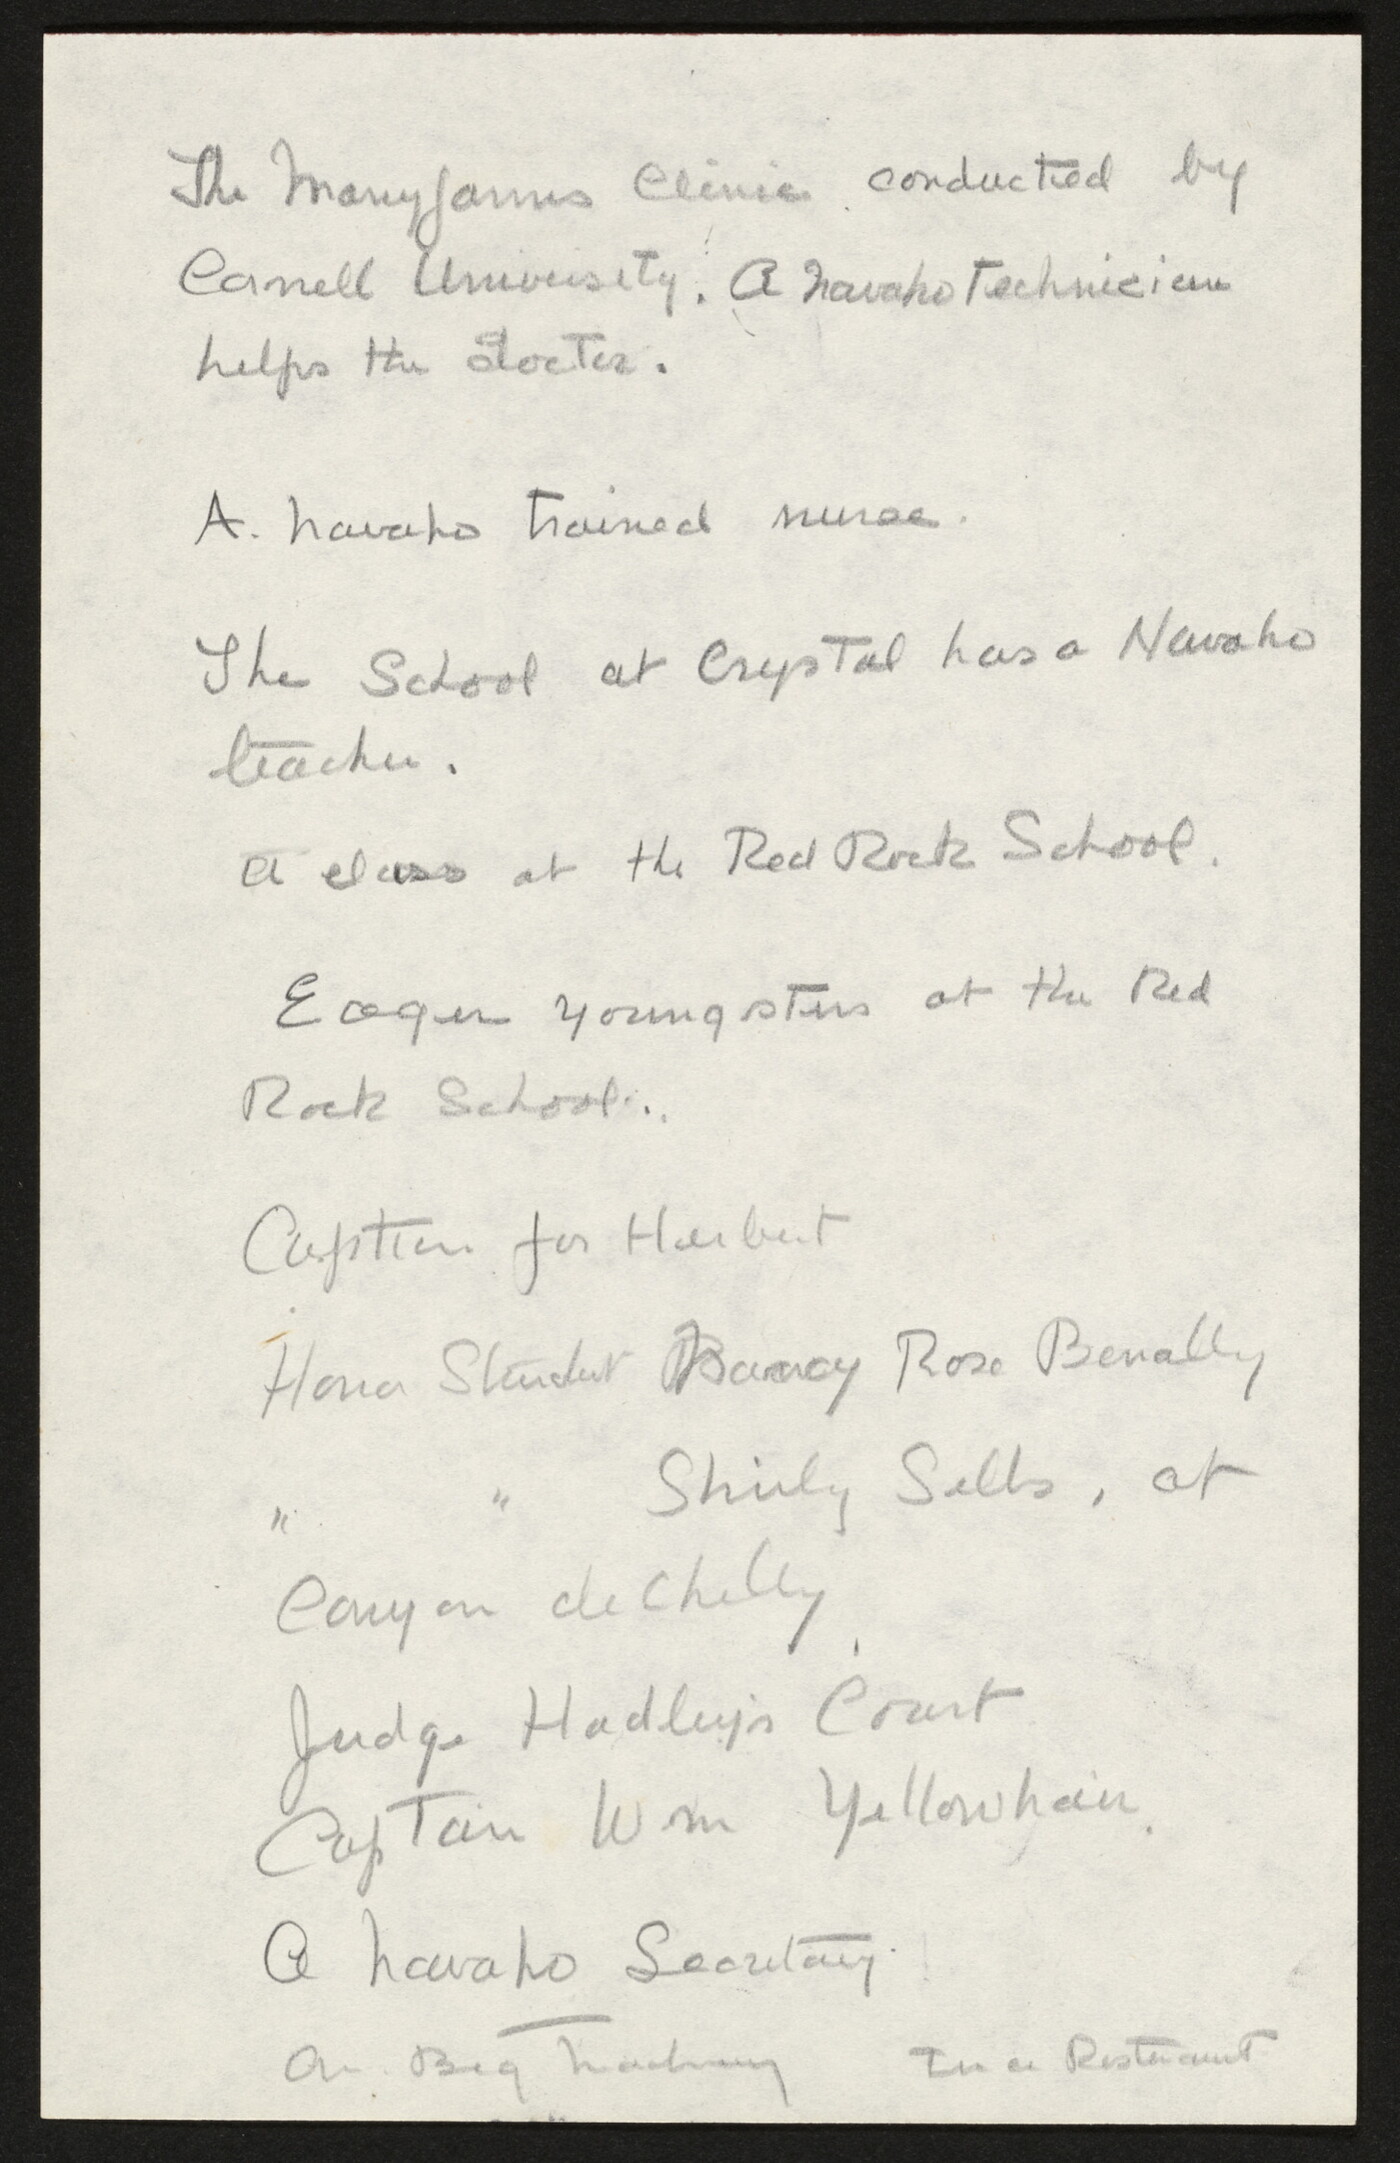 The Manyfarms Clinic conducted by
Cornell University. A Navaho Technician
helps the doctor.
A. Navaho trained nurse.
The School at Crystal has a Navaho
teacher.
A class at the Red Rock School.
Eager youngsters at the Red
Rock School.
Caption for Herbert
Honor Student Nancy Rose Benally
" " Shirly Sells, at
Canyon de Chelly
Judge Hadley's Court
Captain Wm Yellowhair.
A Navaho Secretary.
On Big Machinery In a Resteraunt